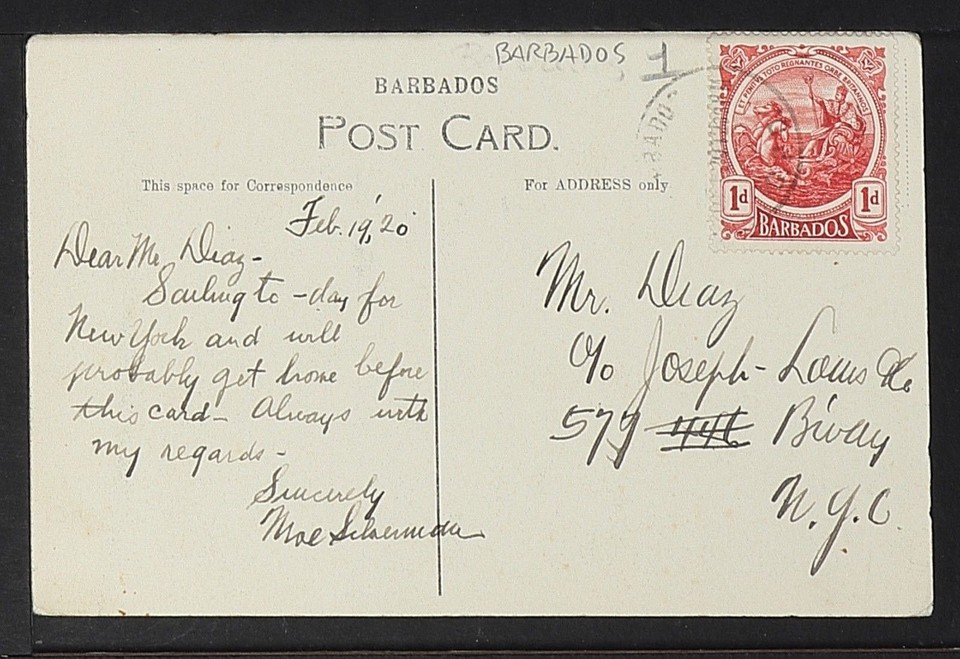 BARBADOS 1
BARBADOS
POST CARD.
This space for Correspondence
For ADDRESS only
ET PENITUS TOTO REGNANTES ORBE BRITANNOS
1d 1d
BARBADOS
BADOS
Feb. 19, '20
Dear Mr. Diaz -
Sailing to-day for
New York and will
probably get home before
this card - Always with
my regards -
Sincerely
Moe Silverman
Mr. Diaz
c/o Joseph - Louis Co
579 B'way
N.Y.C.